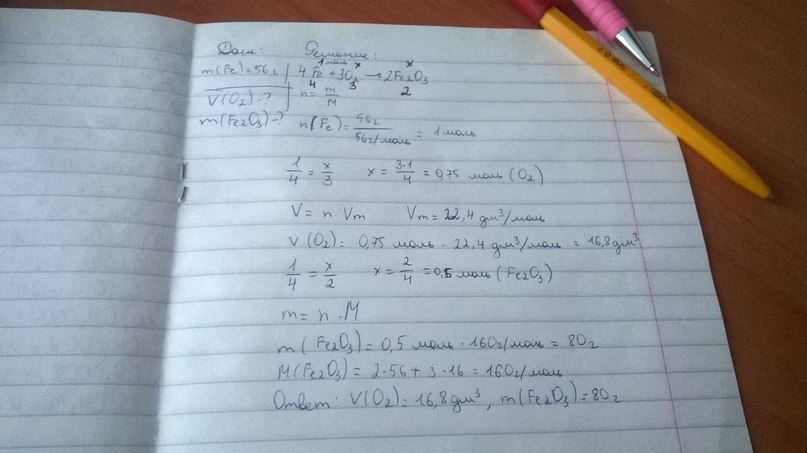 Дано: Решение:
1 моль x x
m(Fe)=56г 4Fe+3O₂→2Fe₂O₃
4 3 2
V(O₂)-? n=m/M
m(Fe₂O₃)-? n(Fe)=56г/56г/моль = 1 моль
1/4=x/3 x=3·1/4=0,75 моль (O₂)
V=n·Vm Vm=22,4 дм³/моль
V(O₂)=0,75 моль · 22,4 дм³/моль = 16,8 дм³
1/4=x/2 x=2/4=0,5 моль (Fe₂O₃)
m=n·M
m(Fe₂O₃)=0,5 моль·160г/моль=80г
M(Fe₂O₃)=2·56+3·16=160г/моль
Ответ: V(O₂)=16,8дм³, m(Fe₂O₃)=80г